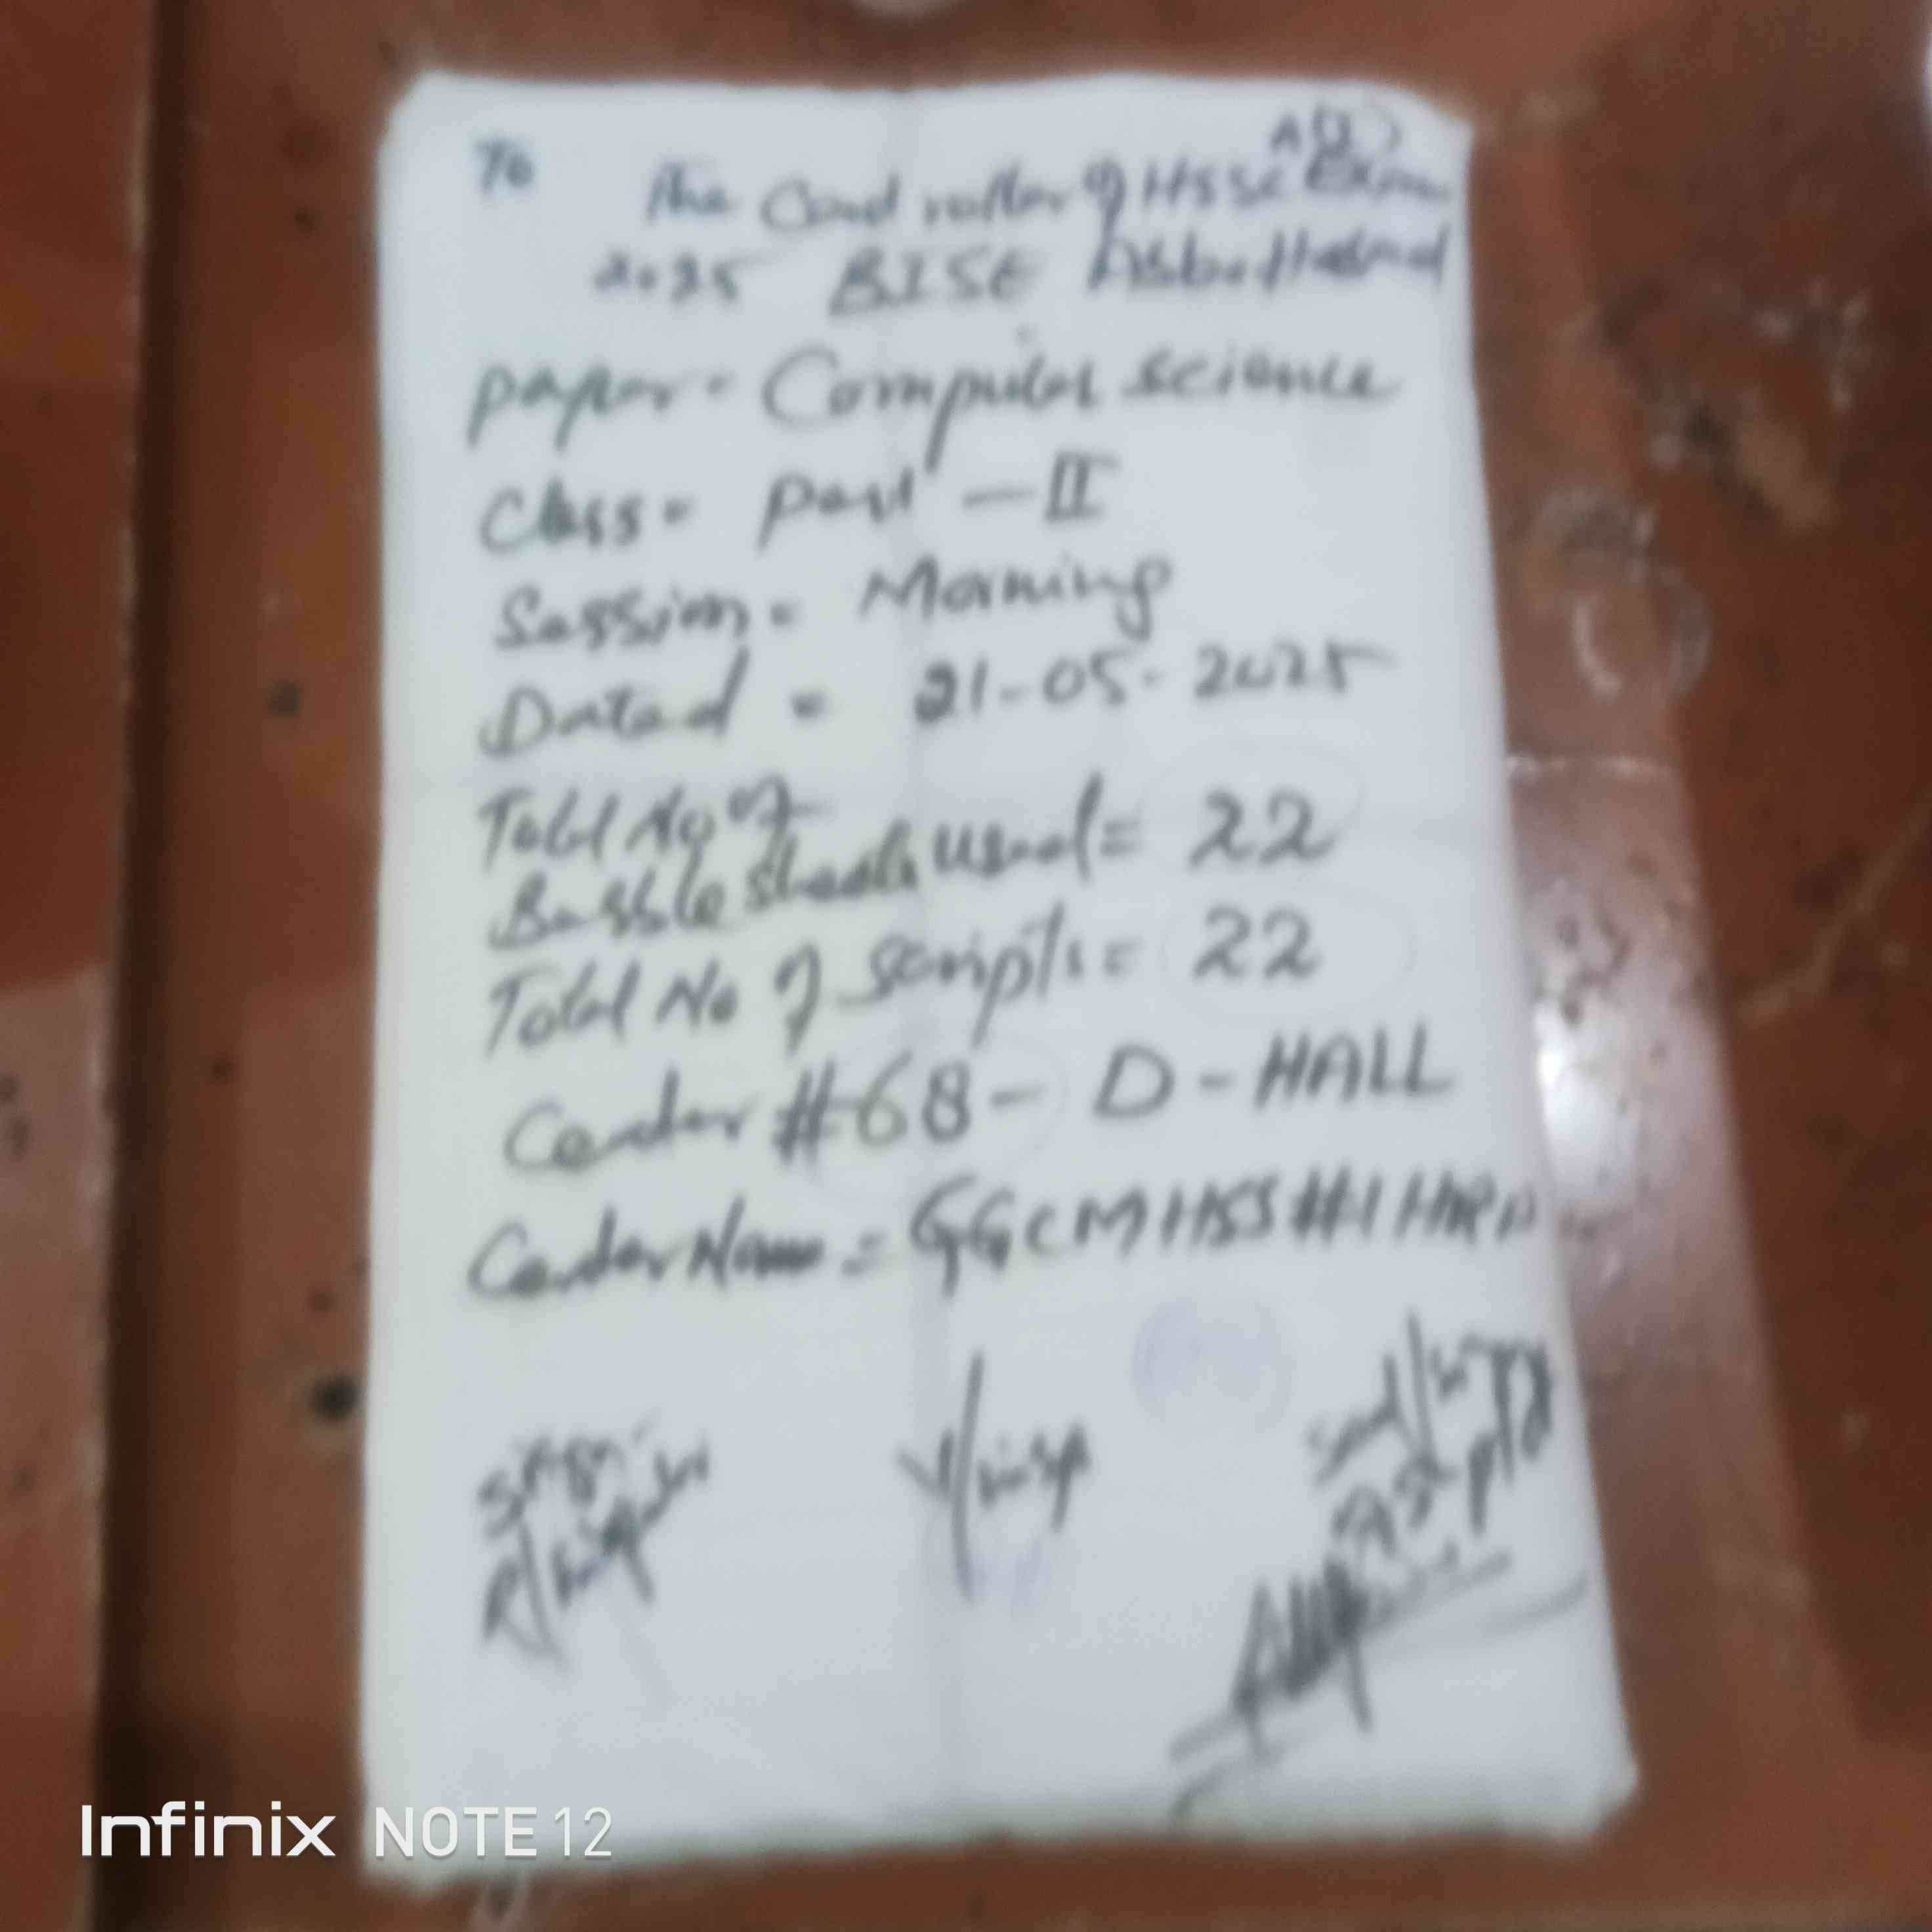 To
The Controller of HSSC Exam
2025 BISE Abbottabad
Paper = Computer science
Class = Part - II
Session = Morning
Dated = 21-05-2025
Total No of
Bubble Sheets used = 22
Total No of Scripts = 22
Center #68 - D - HALL
Center Name = GGCMHSS #1 HRP
Infinix NOTE 12